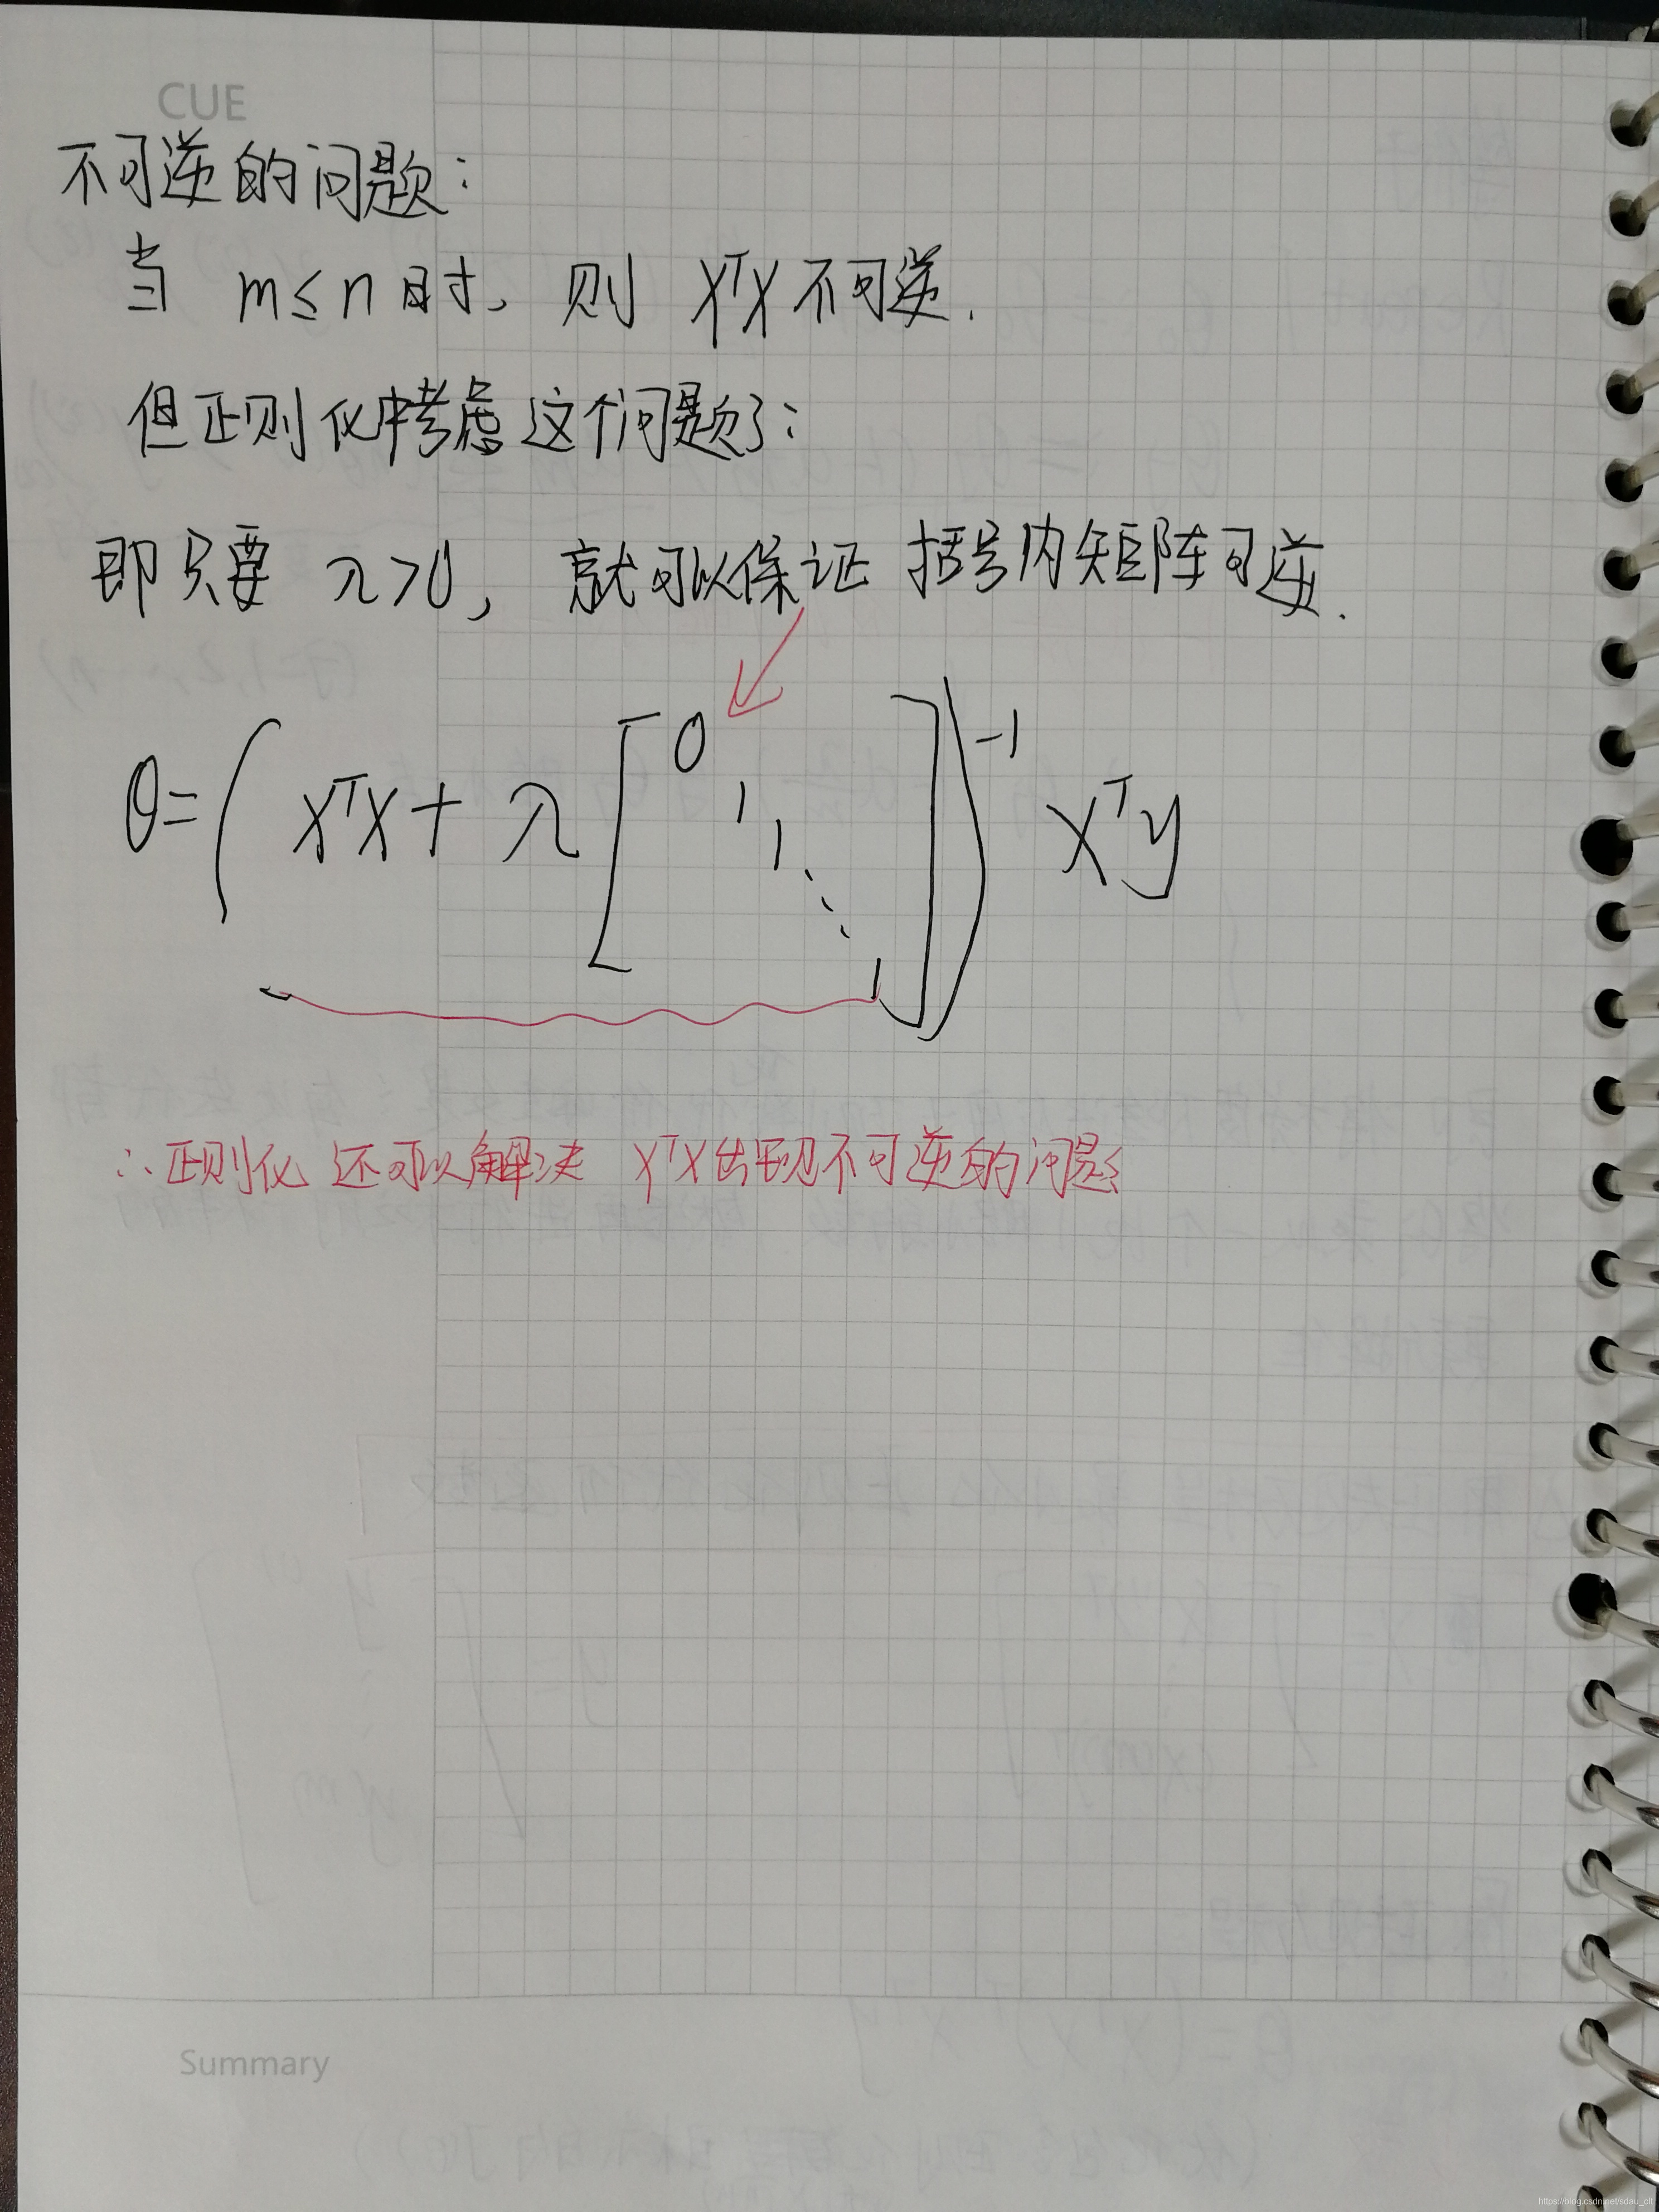 CUE
不可逆的问题：
当 m≤n时，则 XᵀX不可逆.
但正则化中考虑这个问题了：
即只要 λ>0，就可以保证 括号内矩阵可逆.
θ=(XᵀX+λ[0 1 1 ⋱ 1])⁻¹Xᵀy
∴正则化 还可以解决 XᵀX出现不可逆的问题
Summary
https://blog.csdn.net/sdau_clt